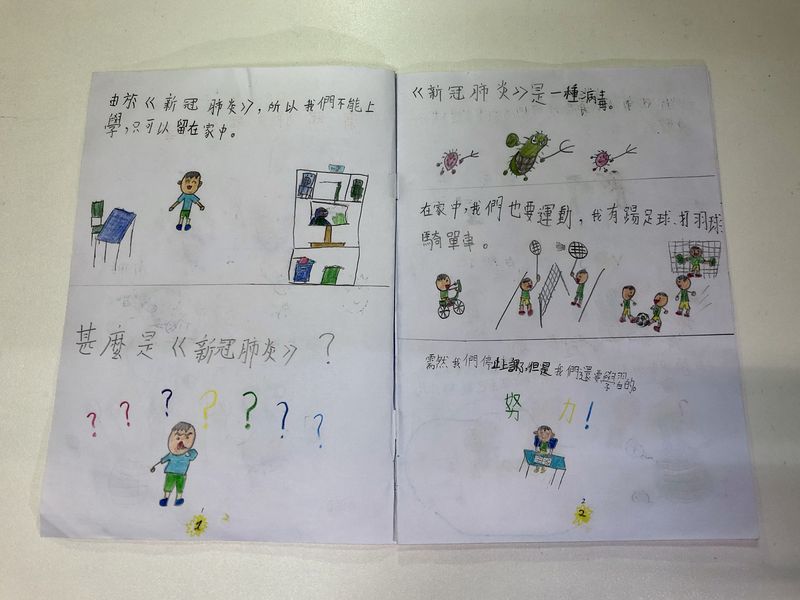 由於《新冠肺炎》,所以我們不能上
學,只可以留在家中。
甚麼是《新冠肺炎》?
? ? ? ? ? ? ?
1
1
《新冠肺炎》是一種病毒。
在家中,我們也要運動,我有踢足球、打羽球
騎單車。
雖然我們停止上課了,但是我們還要學習的。
努力!
2
2